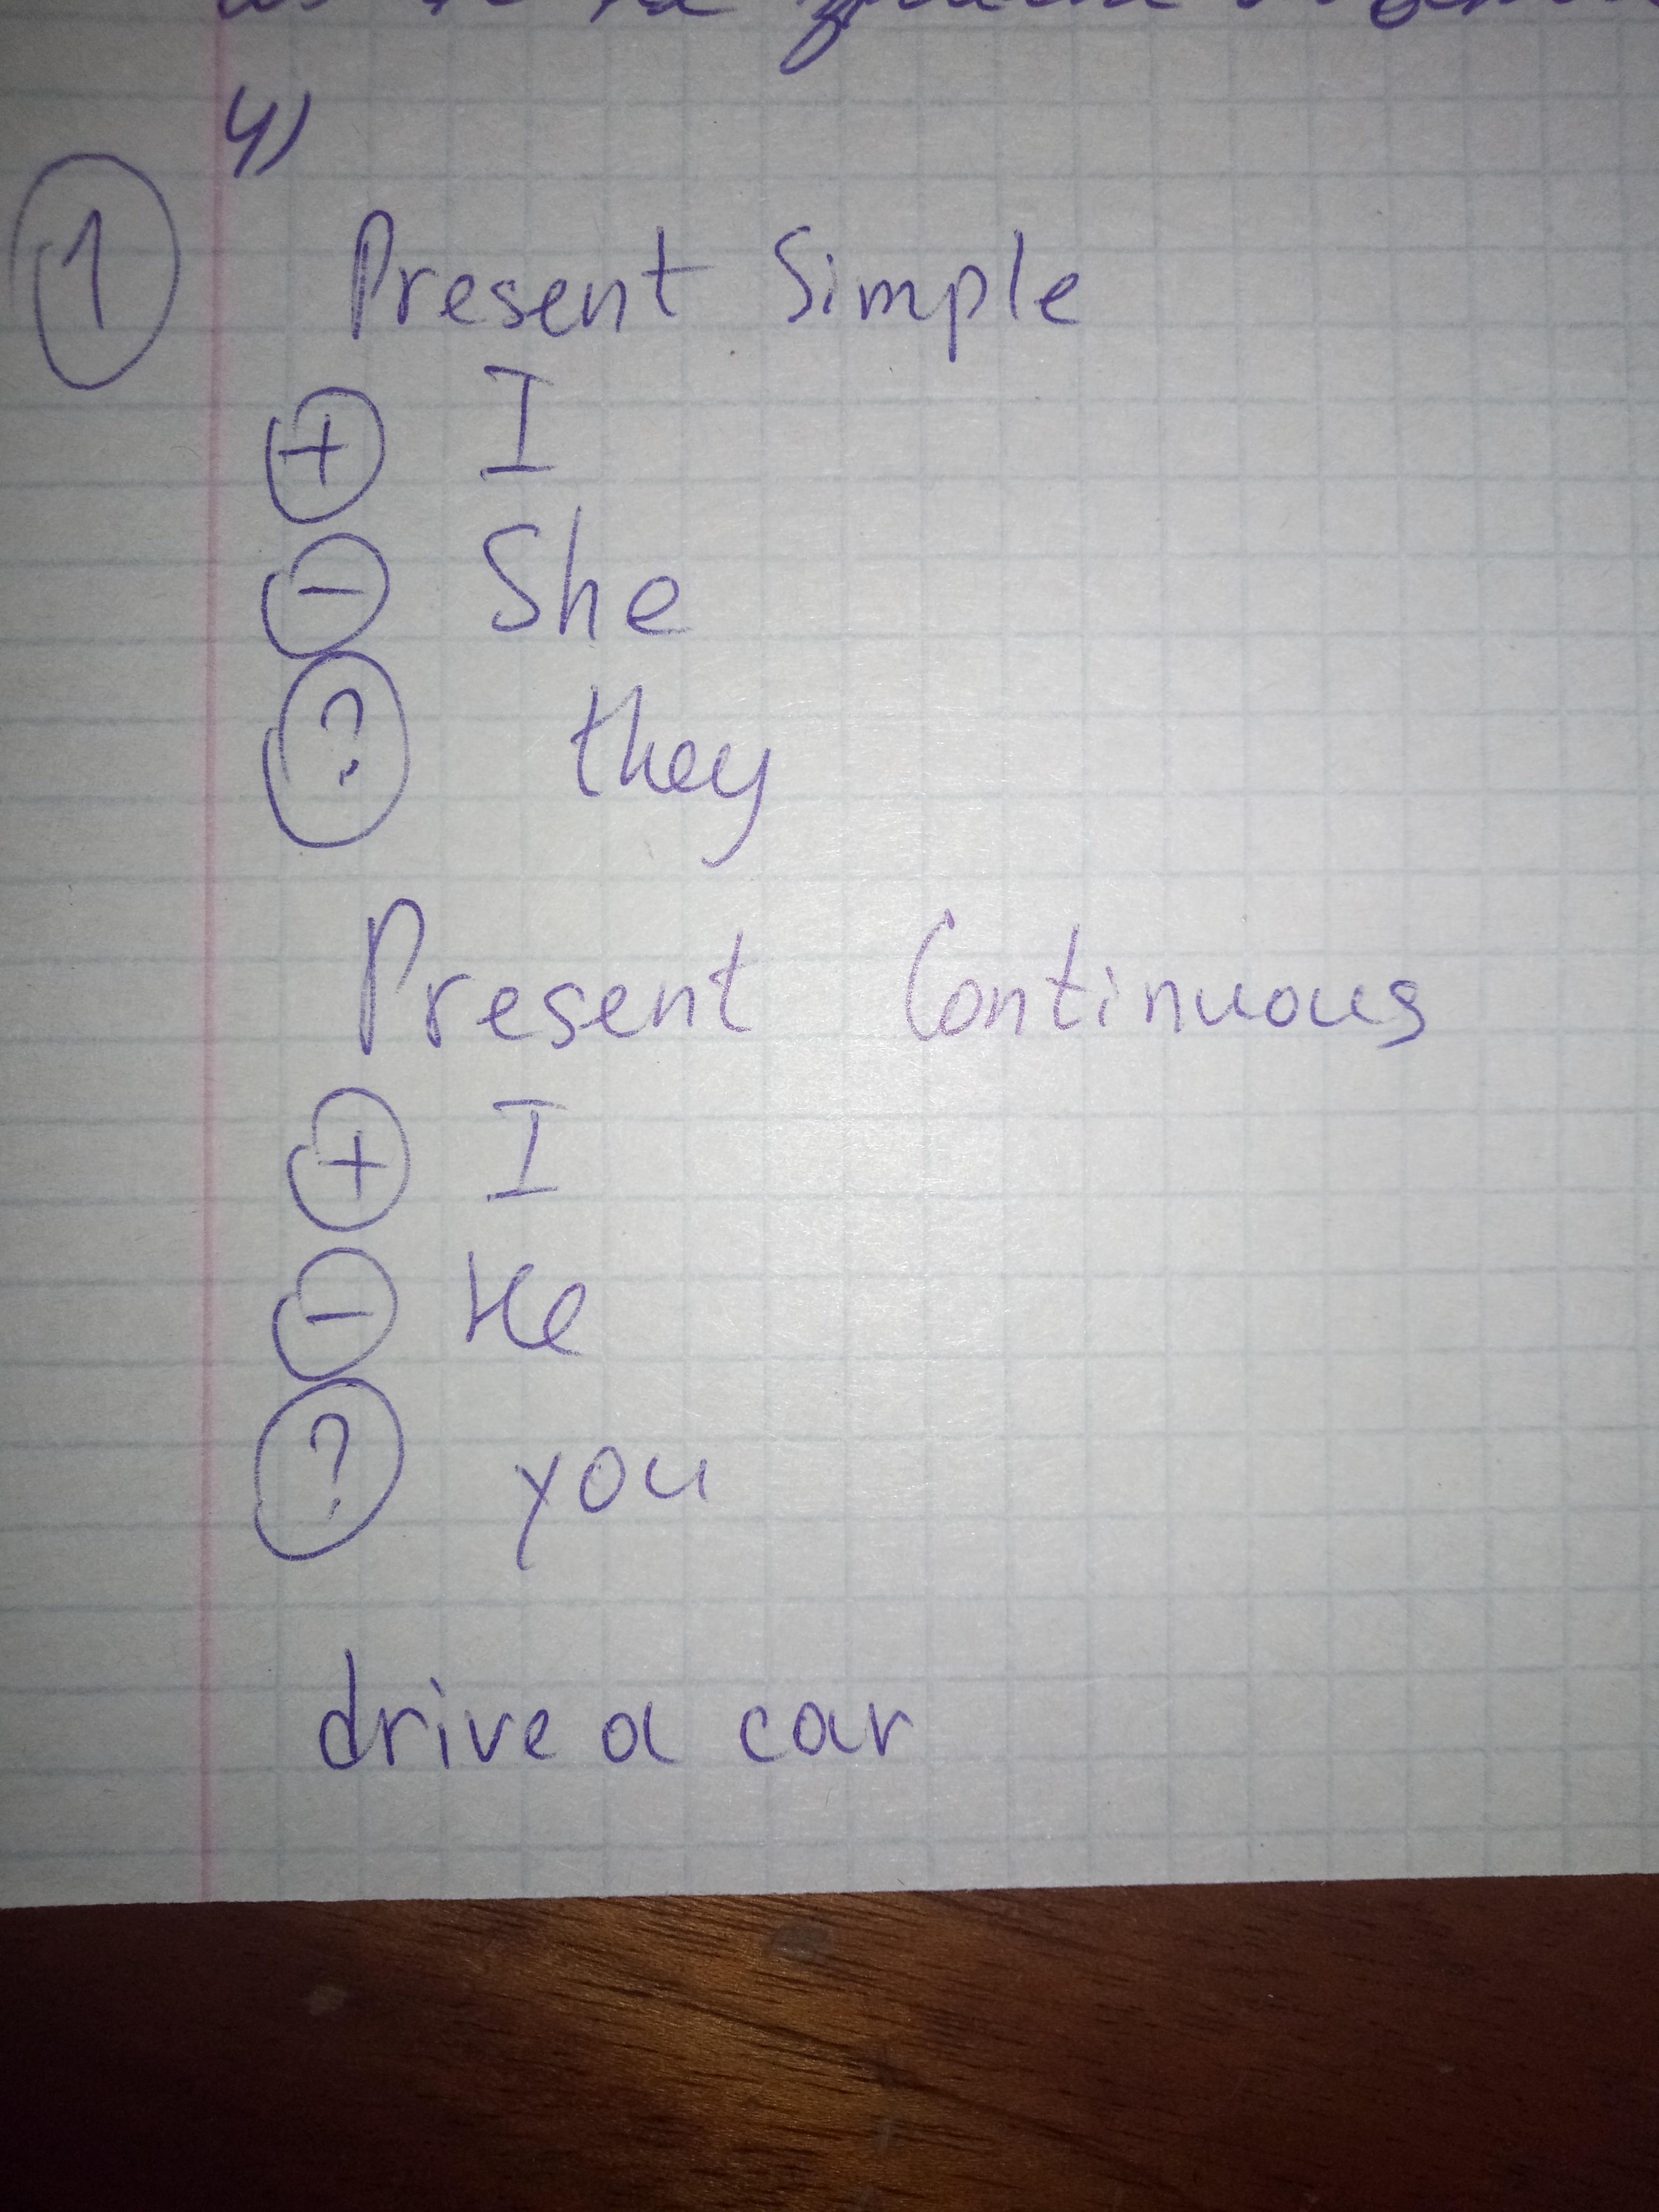 4)
1 Present Simple
+ I
- She
? they
Present Continuous
+ I
- He
? you
drive a car